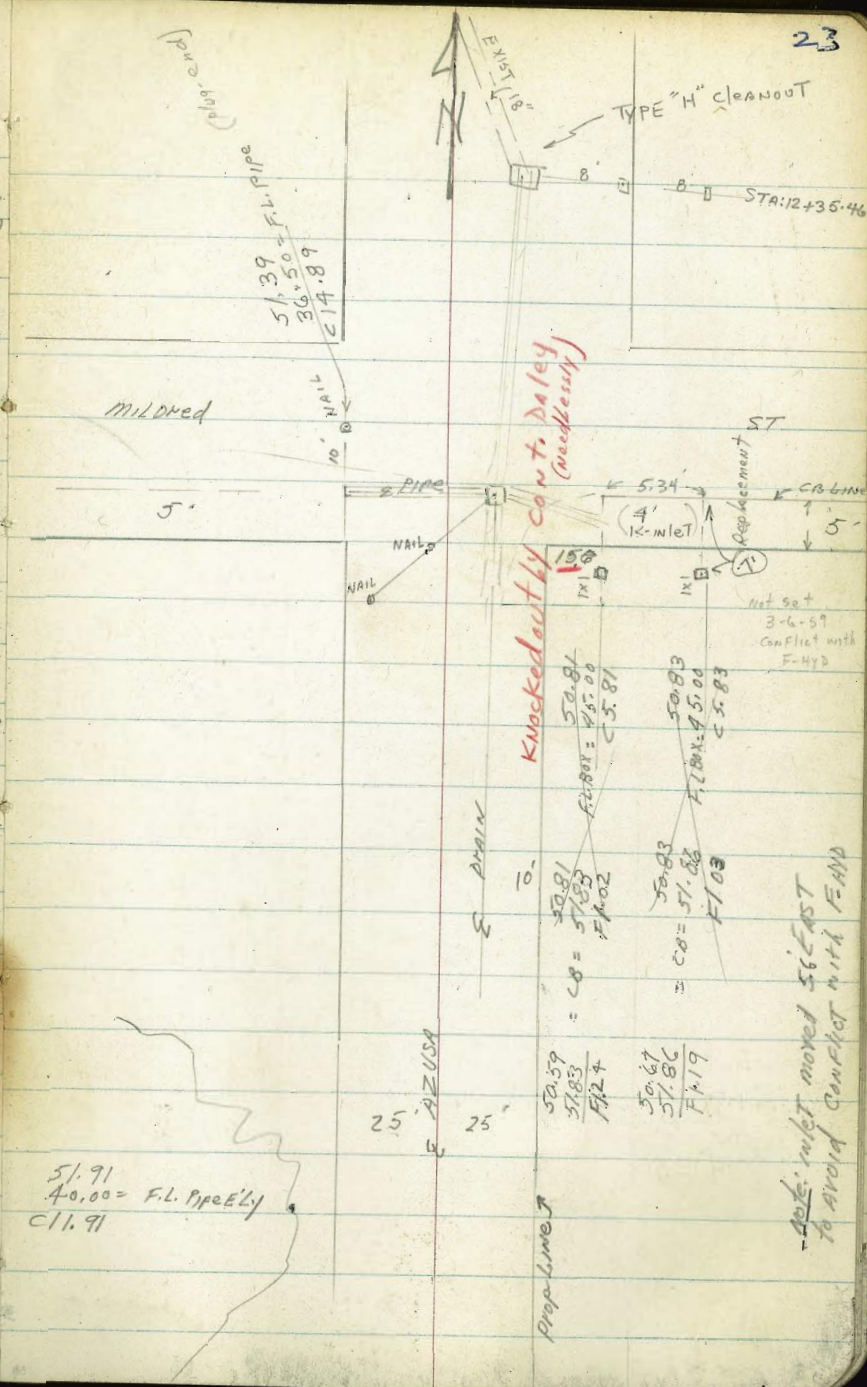 23
(plug-end)
EXIST 18"
TYPE "H" CLEANOUT
8'
8'
STA: 12+35.46
51.39
36.50 = F.L. PIPE
C14.89
NAIL
10'
MILDRED
ST
℄ PIPE
5'
NAIL
NAIL
KNOCKED OUT BY CONT. DALEY
(Needlessly)
5.34'
4'
K-INLET
CB LINE
5'
Replacement
1x1
1x1
Not set
3-6-59
Conflict with
F-HYD
50.81
F.L. BOX = 45.00
C 5.81
50.83
F.L. BOX = 45.00
C 5.83
℄ DRAIN
10'
50.81
= CB = 51.83
F1.02
50.83
= CB = 51.86
F1.03
50.59
51.83
F1.24
50.67
51.86
F1.19
℄ AZUSA
25'
25'
51.91
40.00 = F.L. Pipe E'LY
C11.91
PROP LINE
Note: inlet moved 5.6' EAST
to AVOID CONFLICT with F-HYD